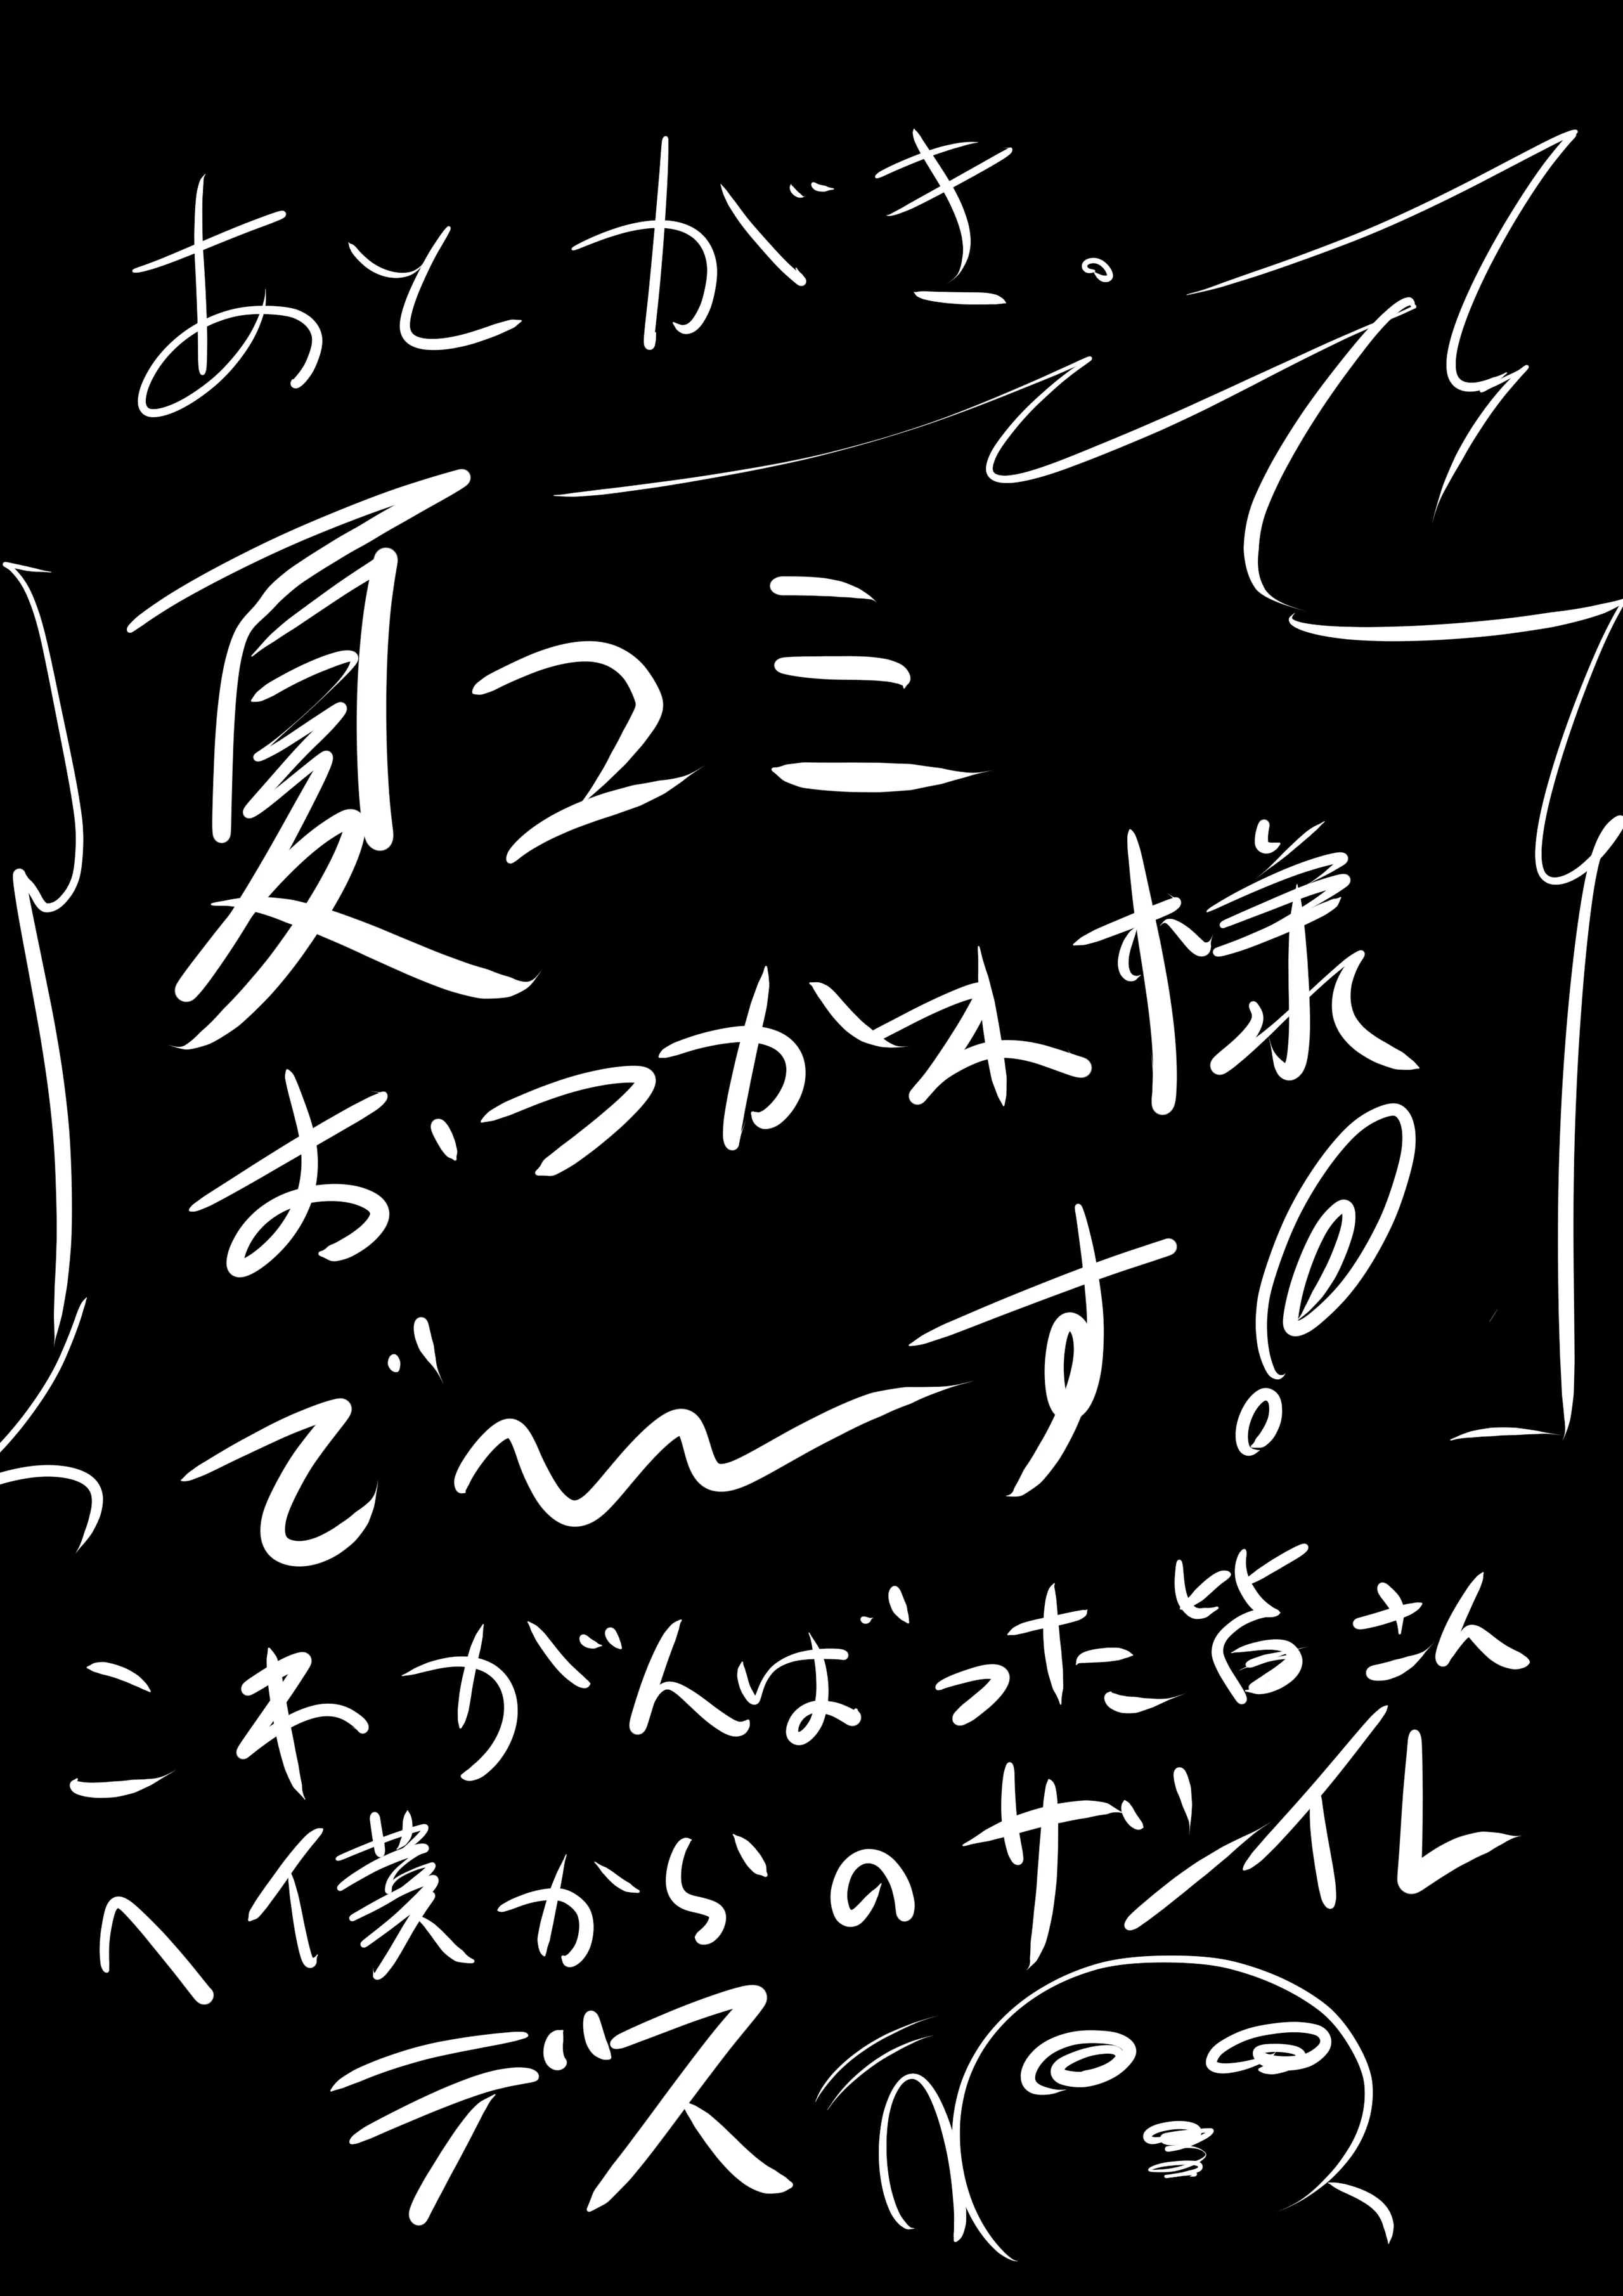 あとがき。
夏コミ
おつかれ様
でーす!
これがんばった皆さん
へ僕からのサプイレ
デス